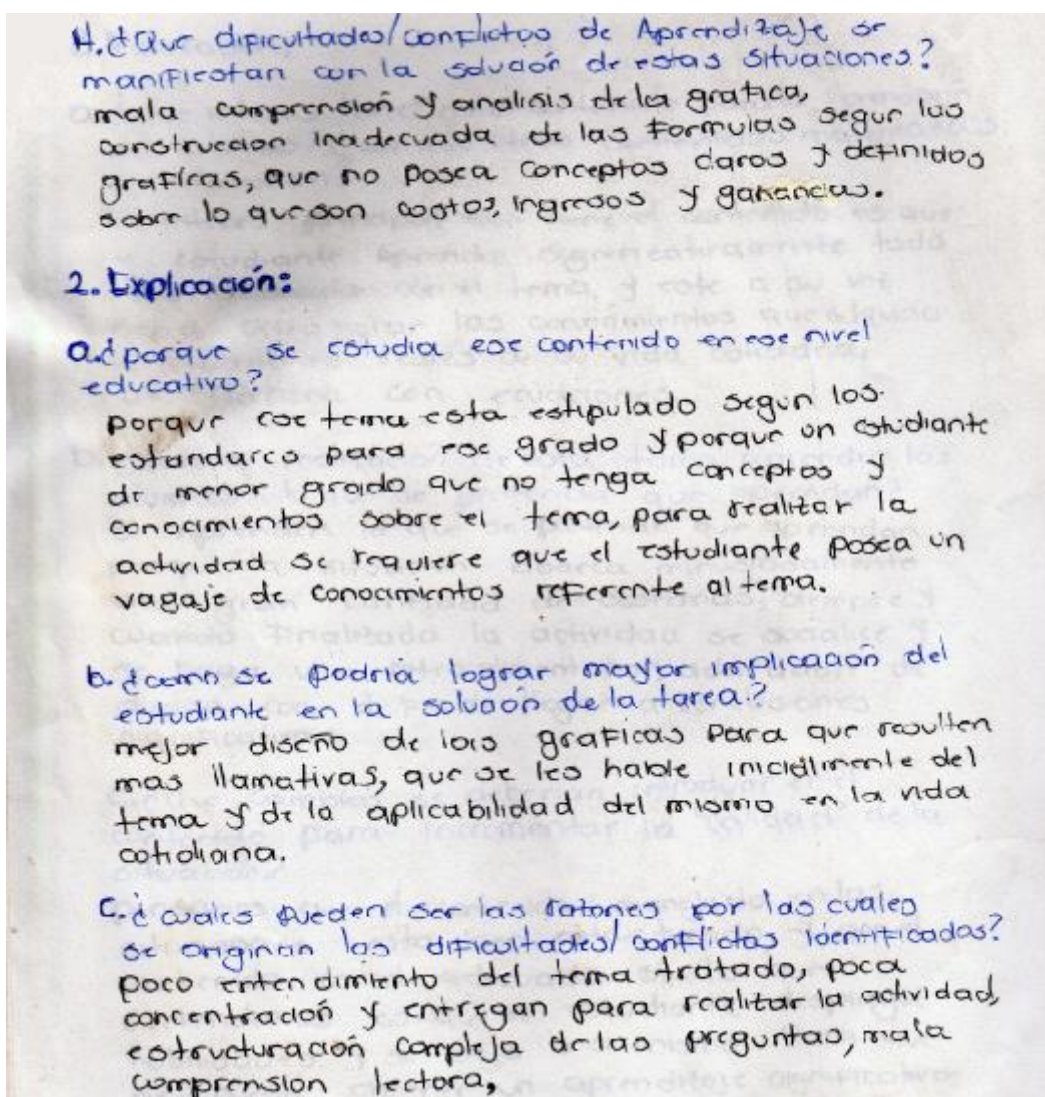 H. ¿Que dificultades/conflictos de Aprendizaje se
manifiestan con la solución de estas situaciones?
mala comprensión y analisis de la grafica,
construccion inadecuada de las formulas segun las
graficas, que no posea conceptos claros y definidos
sobre lo que son costos, ingresos y ganancias.
2. Explicación:
a. ¿porque se estudia ese contenido en ese nivel
educativo?
porque ese tema esta estipulado segun los
estandares para ese grado y porque un estudiante
de menor grado que no tenga conceptos y
conocimientos sobre el tema, para realizar la
actividad se requiere que el estudiante posea un
vagaje de conocimientos referente al tema.
b. ¿como se podria lograr mayor implicación del
estudiante en la solución de la tarea?
mejor diseño de las graficas para que resulten
mas llamativas, que se les hable inicialmente del
tema y de la aplicabilidad del mismo en la vida
cotidiana.
C. ¿cuales pueden ser las razones por las cuales
se originan las dificultades/conflictos identificados?
poco entendimiento del tema tratado, poca
concentración y entregan para realizar la actividad,
estructuración compleja de las preguntas, mala
comprension lectora,